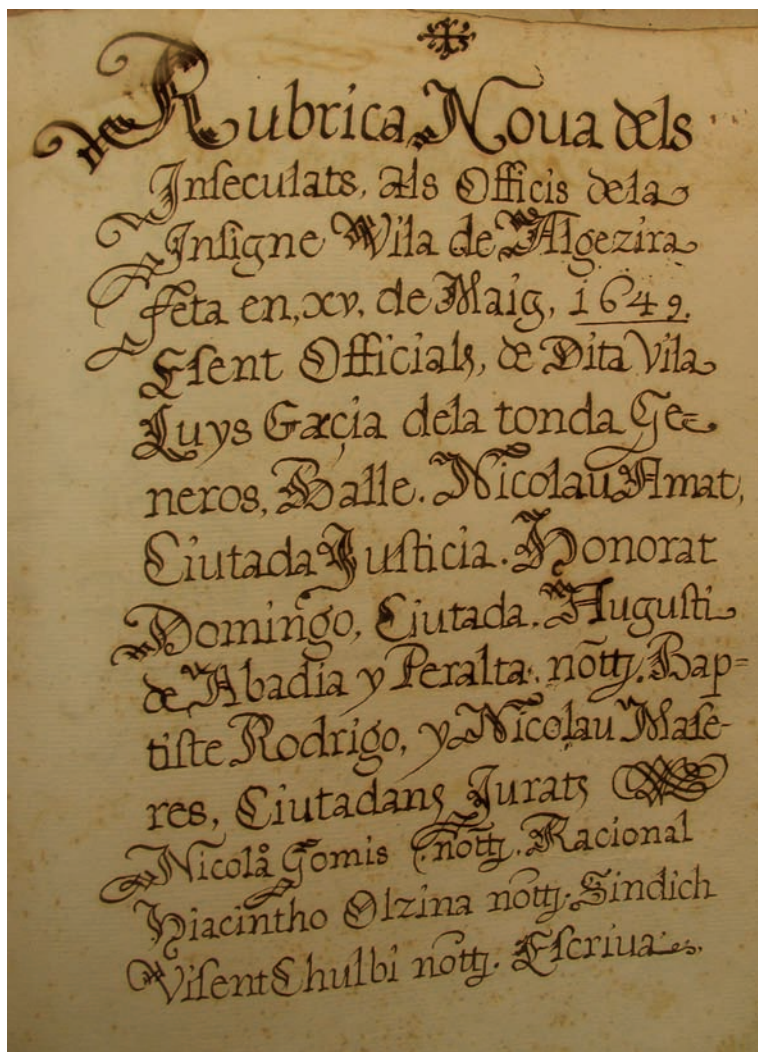 Rubrica Noua dels
Inseculats, als Officis dela
Insigne Vila de Algezira
feta en, xv. de Maig, 1649.
Esent Officials, de Dita Vila
Luys Garçia dela tonda Ge=
neros, Balle. Nicolau Amat,
Ciutada Justicia. Honorat
Domingo, Ciutada. Augusti
de Abadia y Peralta. nõtt. Bap=
tiste Rodrigo, y Nicolau Mase-
res, Ciutadans Jurats
Nicolà Gomis nõtt. Racional
Hiacintho Olzina nõtt. Sindich
Visent Chulbi nõtt. Escriua